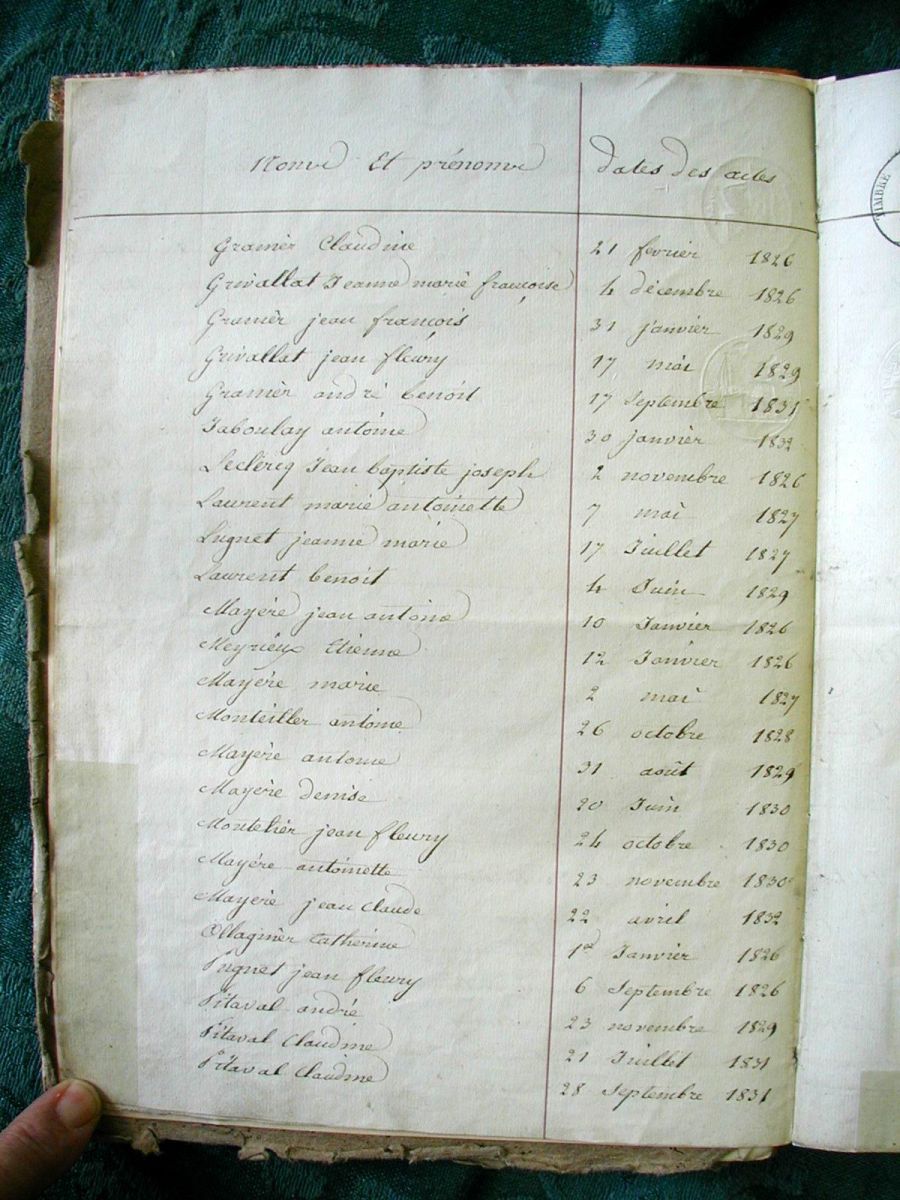 Noms Et prénoms dates des actes
TIMBRE
Granier Claudine 21 fevrier 1826
Grivallat Jeanne marie françoise 4 décembre 1826
Granier jean françois 31 janvier 1829
Grivallat jean fleury 17 mai 1829
Granier andré benoit 17 Septembre 1831
Jaboulay antoine 30 janvier 1832
Leclercq Jean baptiste joseph 2 novembre 1826
Laurent marie antoinette 7 mai 1827
Lugnet jeanne marie 17 Juillet 1827
Laurent benoit 4 Juin 1829
Mayère jean antoine 10 Janvier 1826
Meyrieux Etienne 12 Janvier 1826
Mayère marie 2 mai 1827
Monteiller antoine 26 octobre 1828
Mayère antoine 31 août 1829
Mayère denise 20 Juin 1830
Montelier jean fleury 24 octobre 1830
Mayère antoinette 23 novembre 1830
Mayère jean Claude 22 avril 1832
Ollagnier Catherine 1er Janvier 1826
Pugnet jean fleury 6 Septembre 1826
Pitaval andré 23 novembre 1829
Pitaval Claudine 21 Juillet 1831
Pitaval Claudine 28 Septembre 1831